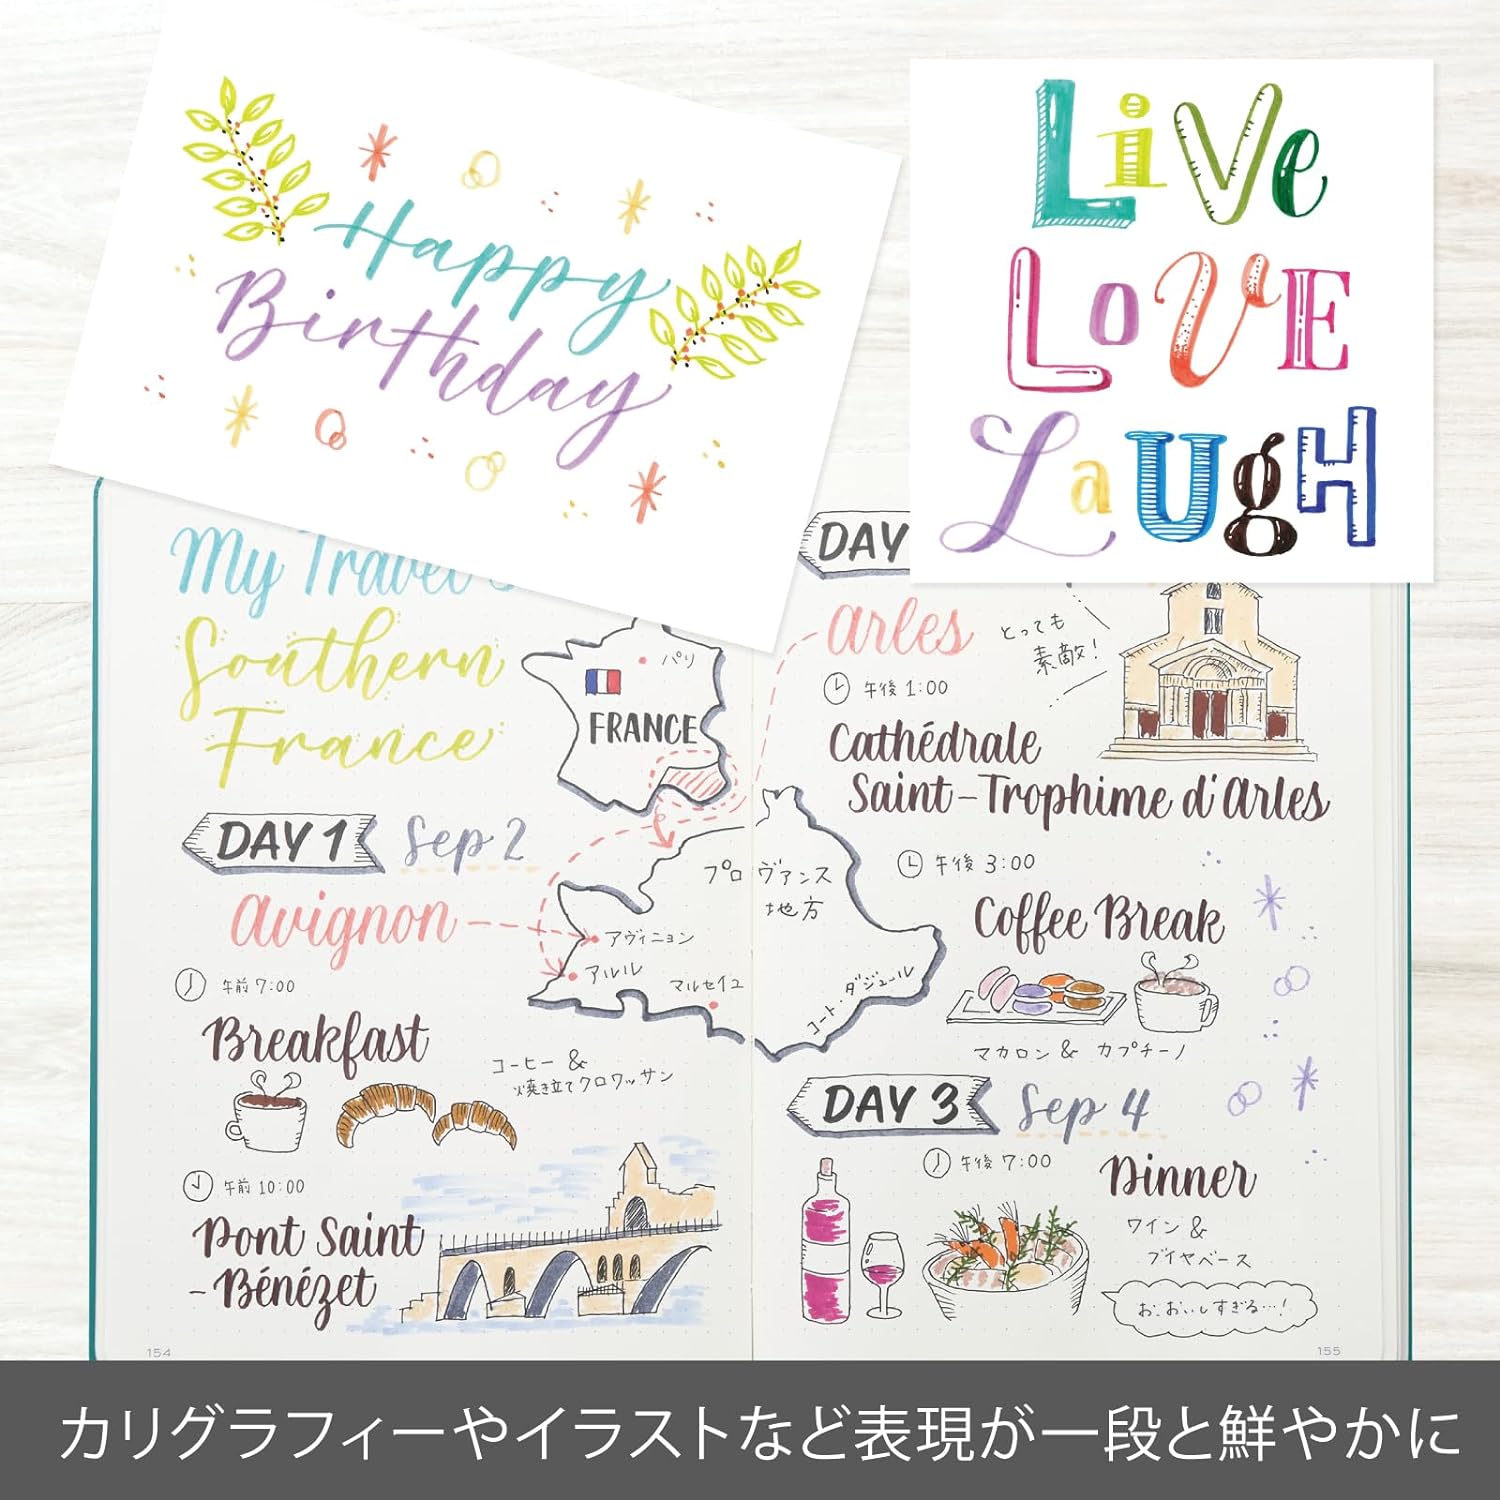 Happy
Birthday
Live
Love
Laugh
My Travel
Southern
France
パリ
FRANCE
DAY 1 Sep 2
avignon
午前 7:00
Breakfast
コーヒー &
焼き立てクロワッサン
午前 10:00
Pont Saint
-Bénézet
プロヴァンス
地方
アヴィニョン
アルル
マルセイユ
コート・ダジュール
154
DAY
arles
とっても
素敵!
午後 1:00
Cathédrale
Saint-Trophime d'arles
午後 3:00
Coffee Break
マカロン & カプチーノ
DAY 3 Sep 4
午後 7:00
Dinner
ワイン &
ブイヤベース
お、おいしすぎる…!
155
カリグラフィーやイラストなど表現が一段と鮮やかに